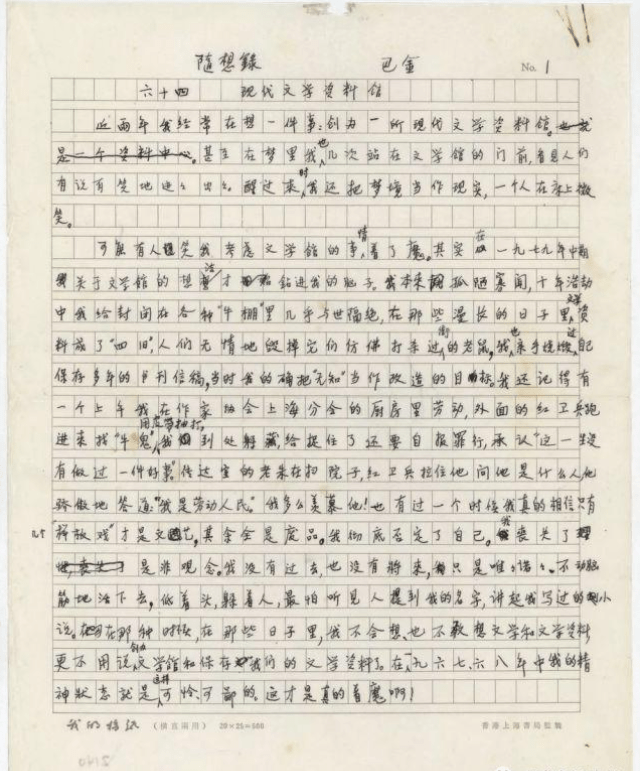 随想録 巴金 No. 1
六十四 现代文学资料馆
近两年我经常在想一件事：创办一所现代文学资料馆。也就
是一个资料中心。甚至在梦里我也几次站在文学馆的门前，看见人们
有说有笑地进进出出。醒过来时，我还把梦境当作现实，一个人在床上微
笑。
可能有人笑我考虑文学馆的事情，着了魔。其实在一九七九年中期
关于文学馆的想法才钻进我的脑子。我本来孤陋寡闻，十年浩劫
中我给封闭在各种“牛棚”里几乎与世隔绝，在那些漫长的日子里，文学资
料成了“四旧”，人们无情地毁掉它们仿佛打杀过街的老鼠，我也亲手烧毁过自己
保存多年的书刊信稿，当时我的确把“无知”当作改造的目标。我还记得有
一个上午我在作家协会上海分会的厨房里劳动，外面的红卫兵跑
进来找“牛鬼”用皮带抽打，我到处躲藏，给捉住了还要自报罪行，承认“这一生没
有做过一件好事”。传达室的老朱在扫院子，红卫兵拉住他问他是什么人，他
骄傲地答道：“我是劳动人民。”我多么羡慕他！也有过一个时候我真的相信只有
几个“样板戏”才是文艺，其余全是废品。我彻底否定了自己。我丧失了
是非观念。我没有过去，也没有将来，只是唯唯诺诺，不动脑
筋地活下去，低着头，躲着人，最怕听见人提到我的名字，讲起我写过的小
说，在那种时候，在那些日子里，我不会想，也不敢想文学和文学资料
更不用说创办文学馆和保存我们的文学资料了。在一九六七、六八年中我的精
神状态就是这样可怜、可鄙的。这才是真的着魔啊！
我的稿纸 （横直兩用） 20×25=500 香港上海書局監製